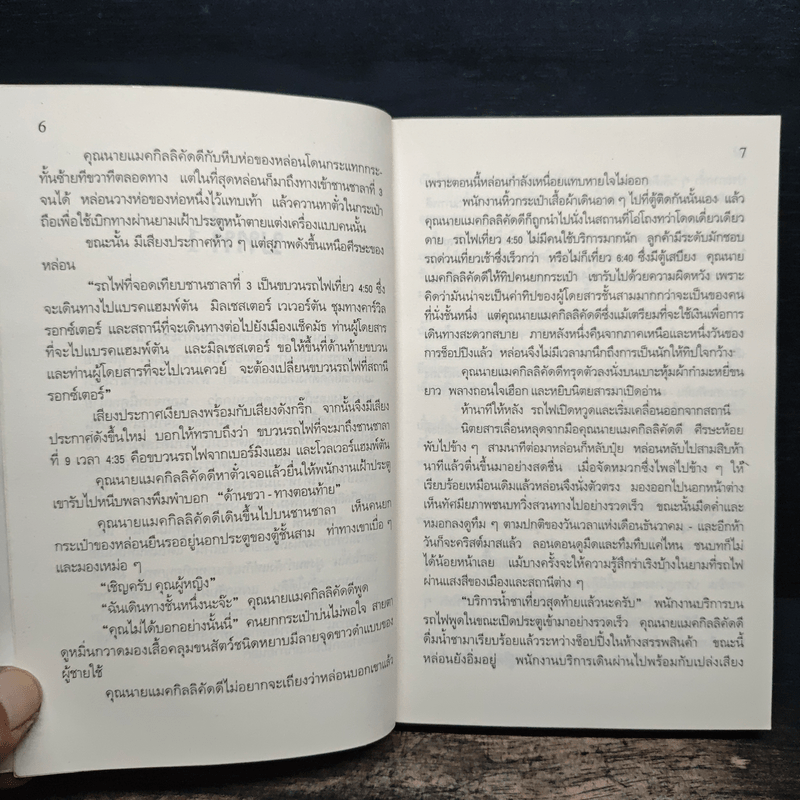 6
คุณนายแมคกิลลิคัดดีกับหีบห่อของหล่อนโดนกระแทกกระ-
ทั้นซ้ายทีขวาทีตลอดทาง แต่ในที่สุดหล่อนก็มาถึงทางเข้าชานชาลาที่ 3
จนได้ หล่อนวางห่อของห่อหนึ่งไว้แทบเท้า แล้วควานหาตั๋วในกระเป๋า
ถือเพื่อใช้เบิกทางผ่านยามเฝ้าประตูหน้าตายแต่งเครื่องแบบคนนั้น
ขณะนั้น มีเสียงประกาศห้าว ๆ แต่สุภาพดังขึ้นเหนือศีรษะของ
หล่อน
“รถไฟที่จอดเทียบชานชาลาที่ 3 เป็นขบวนรถไฟเที่ยว 4:50 ซึ่ง
จะเดินทางไปแบรคแฮมพ์ตัน มิลเชสเตอร์ เวเวอร์ตัน ชุมทางคาร์วิล
รอกซ์เตอร์ และสถานีที่จะเดินทางต่อไปยังเมืองแช็ดมัธ ท่านผู้โดยสาร
ที่จะไปแบรคแฮมพ์ตัน และมิลเชสเตอร์ ขอให้ขึ้นที่ด้านท้ายขบวน
และท่านผู้โดยสารที่จะไปเวนเควย์ จะต้องเปลี่ยนขบวนรถไฟที่สถานี
รอกซ์เตอร์”
เสียงประกาศเงียบลงพร้อมกับเสียงดังกริ๊ก จากนั้นจึงมีเสียง
ประกาศดังขึ้นใหม่ บอกให้ทราบถึงว่า ขบวนรถไฟที่จะมาถึงชานชาลา
ที่ 9 เวลา 4:35 คือขบวนรถไฟจากเบอร์มิงแฮม และโวลเวอร์แฮมพ์ตัน
คุณนายแมคกิลลิคัดดีหาตั๋วเจอแล้วยื่นให้พนักงานเฝ้าประตู
เขารับไปหนีบพลางพึมพำบอก “ด้านขวา - ทางตอนท้าย”
คุณนายแมคกิลลิคัดดีเดินขึ้นไปบนชานชาลา เห็นคนยก
กระเป๋าของหล่อนยืนรออยู่นอกประตูของตู้ชั้นสาม ท่าทางเขาเบื่อ ๆ
และมองเหม่อ ๆ
“เชิญครับ คุณผู้หญิง”
“ฉันเดินทางชั้นหนึ่งนะจ๊ะ” คุณนายแมคกิลลิคัดดีพูด
“คุณไม่ได้บอกอย่างนั้นนี่” คนยกกระเป๋าบ่นไม่พอใจ สายตา
ดูหมิ่นกวาดมองเสื้อคลุมขนสัตว์ชนิดหยาบมีลายจุดขาวดำแบบของ
ผู้ชายใช้
คุณนายแมคกิลลิคัดดีไม่อยากจะเถียงว่าหล่อนบอกเขาแล้ว
7
เพราะตอนนี้หล่อนกำลังเหนื่อยแทบหายใจไม่ออก
พนักงานหิ้วกระเป๋าเสื้อผ้าเดินอาด ๆ ไปที่ตู้ติดกันนั้นเอง แล้ว
คุณนายแมคกิลลิคัดดีก็ถูกนำไปนั่งในสถานที่โอ่โถงทว่าโดดเดี่ยวเดียว
ดาย รถไฟเที่ยว 4:50 ไม่มีคนใช้บริการมากนัก ลูกค้ามีระดับมักชอบ
รถด่วนเที่ยวเช้าซึ่งเร็วกว่า หรือไม่ก็เที่ยว 6:40 ซึ่งมีตู้เสบียง คุณนาย
แมคกิลลิคัดดีให้ทิปคนยกกระเป๋า เขารับไปด้วยความผิดหวัง เพราะ
คิดว่ามันน่าจะเป็นค่าทิปของผู้โดยสารชั้นสามมากกว่าจะเป็นของคน
ที่นั่งชั้นหนึ่ง แต่คุณนายแมคกิลลิคัดดีซึ่งแม้เตรียมที่จะใช้เงินเพื่อการ
เดินทางสะดวกสบาย ภายหลังหนึ่งคืนจากภาคเหนือและหนึ่งวันของ
การช็อปปิ้งแล้ว หล่อนจึงไม่มีเวลามานึกถึงการเป็นนักให้ทิปใจกว้าง
คุณนายแมคกิลลิคัดดีทรุดตัวลงนั่งบนเบาะหุ้มผ้ากำมะหยี่ขน
ยาว พลางถอนใจเฮือก และหยิบนิตยสารมาเปิดอ่าน
ห้านาทีให้หลัง รถไฟเปิดหวูดและเริ่มเคลื่อนออกจากสถานี
นิตยสารเลื่อนหลุดจากมือคุณนายแมคกิลลิคัดดี ศีรษะห้อย
พับไปข้าง ๆ สามนาทีต่อมาหล่อนก็หลับปุ๋ย หล่อนหลับไปสามสิบห้า
นาทีแล้วตื่นขึ้นมาอย่างสดชื่น เมื่อจัดหมวกซึ่งไพล่ไปข้าง ๆ ให้
เรียบร้อยเหมือนเดิมแล้วหล่อนจึงนั่งตัวตรง มองออกไปนอกหน้าต่าง
เห็นทัศนียภาพชนบทวิ่งสวนทางไปอย่างรวดเร็ว ขณะนั้นมืดค่ำและ
หมอกลงดูทึม ๆ ตามปกติของวันเวลาแห่งเดือนธันวาคม - และอีกห้า
วันก็จะคริสต์มาสแล้ว ลอนดอนดูมืดและทึมทึบแค่ไหน ชนบทก็ไม่
ได้น้อยหน้าเลย แม้บางครั้งจะให้ความรู้สึกร่าเริงบ้างในยามที่รถไฟ
ผ่านแสงสีของเมืองและสถานีต่าง ๆ
“บริการน้ำชาเที่ยวสุดท้ายแล้วนะครับ” พนักงานบริการบน
รถไฟพูดในขณะเปิดประตูเข้ามาอย่างรวดเร็ว คุณนายแมคกิลลิคัดดี
ดื่มน้ำชามาเรียบร้อยแล้วระหว่างช็อปปิ้งในห้างสรรพสินค้า ขณะนี้
หล่อนยังอิ่มอยู่ พนักงานบริการเดินผ่านไปพร้อมกับเปล่งเสียง